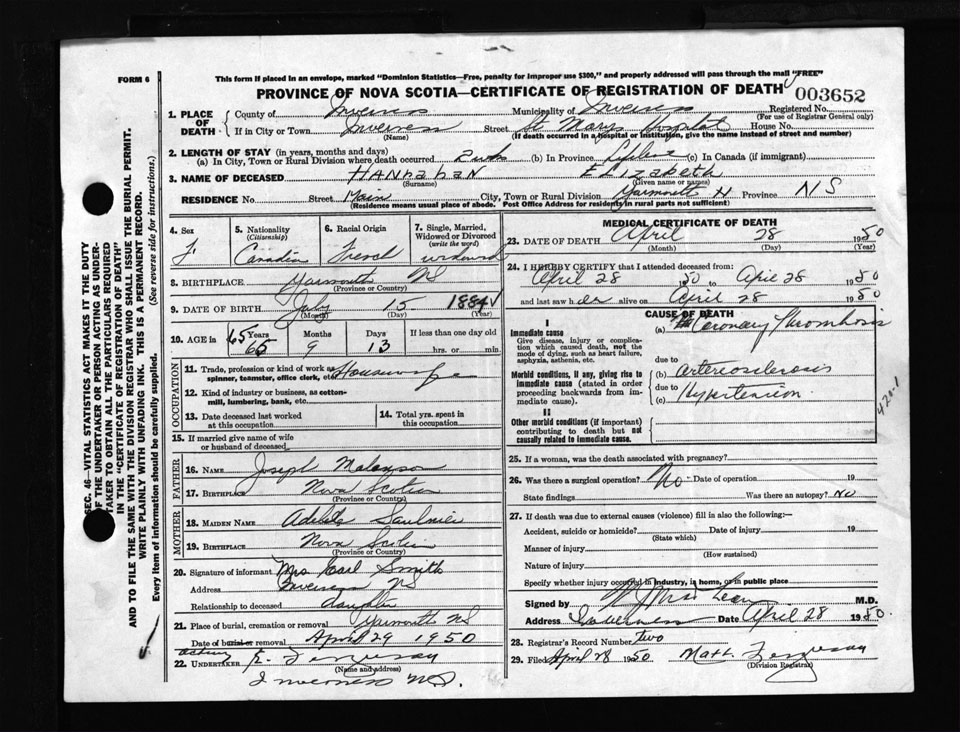 FORM 6
This form if placed in an envelope, marked "Dominion Statistics—Free, penalty for improper use $300," and properly addressed will pass through the mail "FREE"
PROVINCE OF NOVA SCOTIA—CERTIFICATE OF REGISTRATION OF DEATH
003652
1. PLACE OF DEATH County of Inverness Municipality of Inverness Registered No.
(For use of Registrar General only)
If in City or Town Inverness Street St Marys Hospital House No.
(Name) (If death occurred in a hospital or institution, give the name instead of street and number)
2. LENGTH OF STAY (in years, months and days)
(a) In City, Town or Rural Division where death occurred 2 wks (b) In Province Lifetime (c) In Canada (if immigrant)
3. NAME OF DECEASED HANRAHAN ELIZABETH
(Surname) (Given name or names)
RESIDENCE No. Street Main City, Town or Rural Division Yarmouth Province NS
(Residence means usual place of abode. Post Office Address for residents in rural parts not sufficient)
4. Sex F.
5. Nationality (Citizenship) Canadian
6. Racial Origin French
7. Single, Married, Widowed or Divorced (write the word) widowed
8. BIRTHPLACE Yarmouth NS
(Province or Country)
9. DATE OF BIRTH July 15 1884
(Month) (Day) (Year)
10. AGE in 65 Years 65 Months 9 Days 13 If less than one day old
hrs. or min.
OCCUPATION
11. Trade, profession or kind of work as spinner, teamster, office clerk, etc. Housewife
12. Kind of industry or business, as cotton-mill, lumbering, bank, etc.
13. Date deceased last worked at this occupation
14. Total yrs. spent in this occupation
15. If married give name of wife or husband of deceased
FATHER
16. NAME Joseph Malayson
17. BIRTHPLACE Nova Scotia
(Province or Country)
MOTHER
18. MAIDEN NAME Saulnier
19. BIRTHPLACE Nova Scotia
(Province or Country)
20. Signature of informant Mrs Earl Smith
Address Inverness NS
Relationship to deceased daughter
21. Place of burial, cremation or removal Yarmouth NS
Date of burial or removal April 29 1950
acting
22. UNDERTAKER
(Name and address)
Inverness N.S.
MEDICAL CERTIFICATE OF DEATH
23. DATE OF DEATH April 28 1950
(Month) (Day) (Year)
24. I HEREBY CERTIFY that I attended deceased from:
April 28 1950 to April 28 1950
and last saw her alive on April 28 1950
CAUSE OF DEATH
I
Immediate cause
Give disease, injury or complication which caused death, not the mode of dying, such as heart failure, asphyxia, asthenia, etc.
(a) Coronary Thrombosis
due to
Morbid conditions, if any, giving rise to immediate cause (stated in order proceeding backwards from immediate cause).
(b) arteriosclerosis
due to
(c) Hypertension
420-1
II
Other morbid conditions (if important) contributing to death but not causally related to immediate cause.
25. If a woman, was the death associated with pregnancy?
26. Was there a surgical operation? No Date of operation 19
State findings Was there an autopsy? No
27. If death was due to external causes (violence) fill in also the following:—
Accident, suicide or homicide? Date of injury 19
(State which)
Manner of injury
(How sustained)
Nature of injury
Specify whether injury occurred in industry, in home, or in public place
Signed by MacLean M.D.
Address Inverness Date April 28 1950.
28. Registrar's Record Number two
29. Filed April 28 1950 Matt. Ferguson
(Division Registrar)
SEC. 46—VITAL STATISTICS ACT MAKES IT THE DUTY
OF THE UNDERTAKER OR PERSON ACTING AS UNDERTAKER TO OBTAIN ALL THE PARTICULARS REQUIRED
IN THE "CERTIFICATE OF REGISTRATION OF DEATH"
AND TO FILE THE SAME WITH THE DIVISION REGISTRAR WHO SHALL ISSUE THE BURIAL PERMIT.
WRITE PLAINLY WITH UNFADING INK. THIS IS A PERMANENT RECORD.
Every item of information should be carefully supplied. (See reverse side for instructions.)